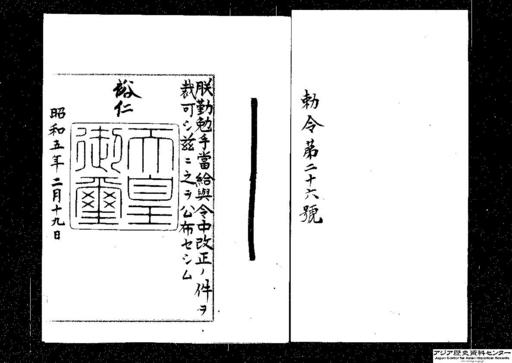 勅令第二十六號
朕勤勉手當給與令中改正ノ件ヲ
裁可シ茲ニ之ヲ公布セシム
裕仁
天皇
御璽
昭和五年二月十九日
アジア歴史資料センター
Japan Center for Asian Historical Records